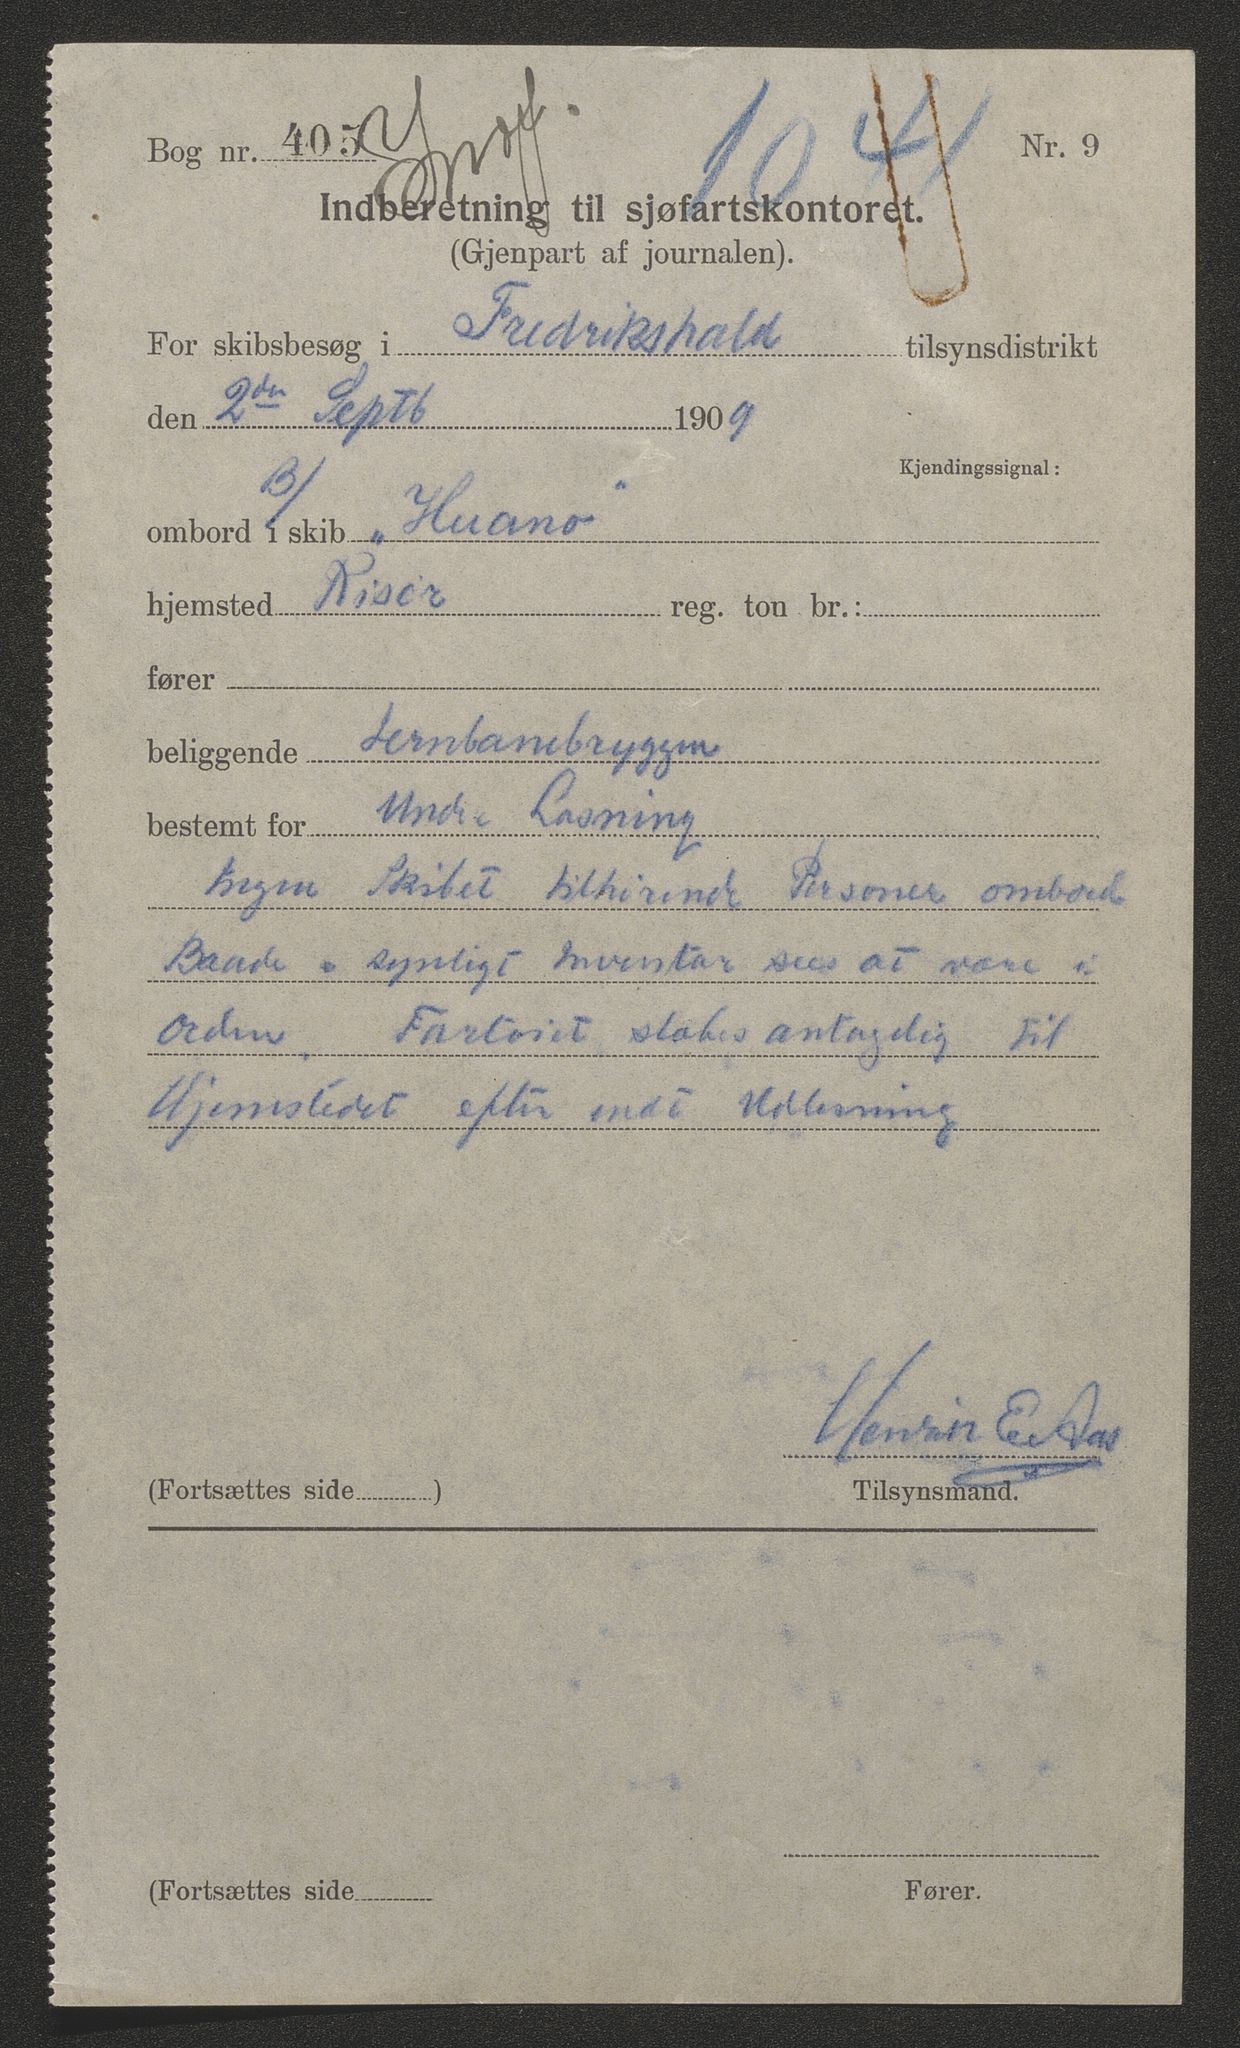 1041
Bog nr. 405
Nr. 9
Indberetning til sjøfartskontoret.
(Gjenpart af journalen).
For skibsbesøg i Fredrikshald tilsynsdistrikt
den 2den Septb 1909
Kjendingssignal:
ombord i B/ skib „Huano"
hjemsted Risör reg. ton br.:
fører
beliggende Jernbanebryggen
bestemt for Under Losning
Ingen Skibet tilhörende Personer ombord
Baade o synligt Inventar sees at være i
Orden. Fartöiet slæbes antagelig til
Hjemstedet efter endt Udlosning
Henrik E. Aas
(Fortsættes side )
Tilsynsmand.
(Fortsættes side
Fører.